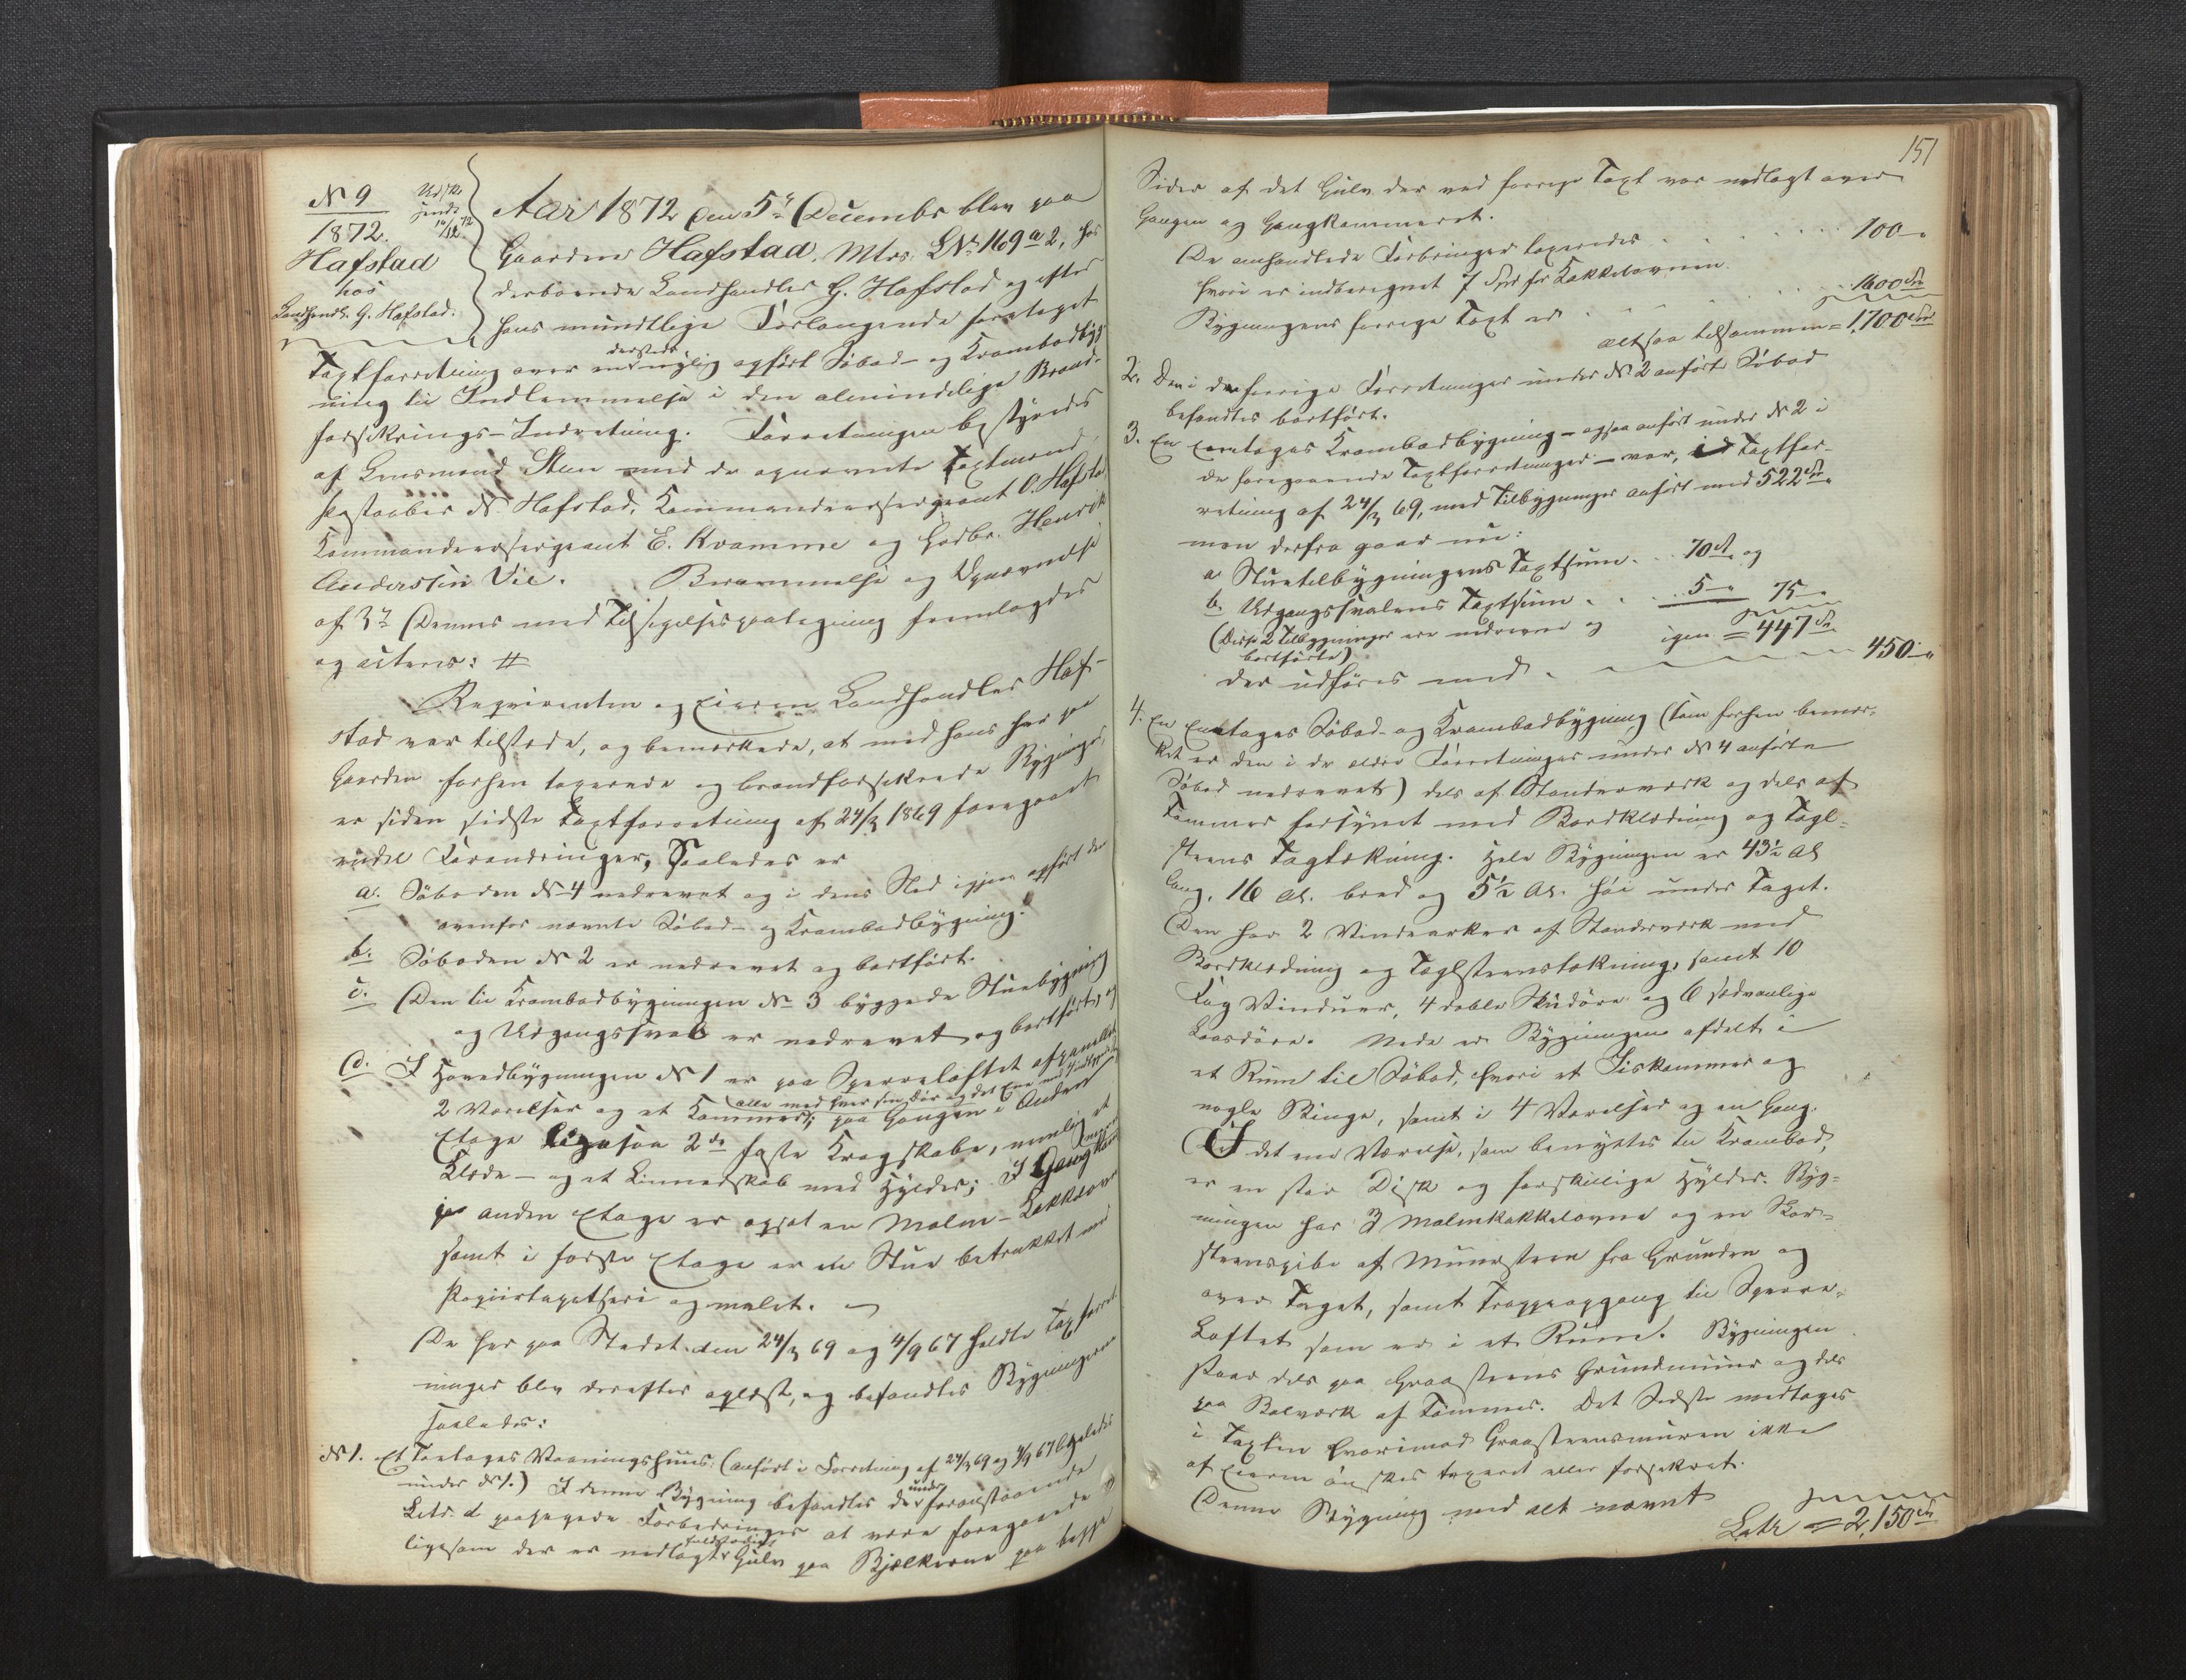 N 9
1872.
Hafstad
hos
Landhandl. G. Hafstad.
Udsk.
sendt
14/12 72
Aar 1872 den 5te Decembr blev paa
Gaarden Hafstad, Mtr. L№ 169 a 2, hos
derboende Landhandler G. Hafstad og efter
hans mundtlige Forlangende foretaget
Taxtforretning over en dersteds nylig opført Søbod- og Krambodbyg-
ning til Indlemmelse i den almindelige Brand-
forsikrings-Indretning. Forretningen bestyredes
af Lensmand Steen med de opnævnte Taxtmænd,
N. Hafstad, Kommandeersergeant O. Hafstad
Kommandeersergeant E. Kvamme og Gdbr. Henrik
Anderssen Vie. Berammelse og Opnævnelse
af 3de Dennes med Tilsigelsespaategning fremlagdes
og acteres: #
Reqvirenten og Eieren Landhandler Haf-
stad var tilstede, og bemærkede, at med hans her paa
Gaarden forhen taxerede og brandforsikrede Bygninger
er siden sidste Taxtforretning af 24/3 1869 foregaaet
endel Forandringer, Saaledes er
a. Søboden N 4 nedrevet og i dens Sted igjen opført den
ovenfor nævnte Søbod- og Krambodbygning.
b. Søboden N 2 er nedrevet og bortført.
c. Den til Krambodbygningen N 3 byggede Stuebygning
og Udgangssval er nedrevet og bortført, og
d. I Hovedbygningen N 1 er paa Sperreloftet afpanellet
2 Værelser og et Kammers, alle med hver sin Dør og det Ene med paa Gangen i Anden
Etage ligesaa 2de faste Kragskabe, nemlig et
Klæde- og et Linnedskab med Hylder; I Gangkam
i anden Etage er opsat en Malm-Kakkelovn
samt i første Etage er en Stue betrukket med
Papiirtapetseri og malet.
De her paa Stedet den 24/3 69 og 4/9 67 holdte Taxtforret-
ninger blev derefter oplæst, og befandtes Bygningerne
saaledes:
N 1. Et Toetages Vaaningshuus: (anført i Forretning af 24/3 69 og 4/9 67 ligeledes
under N 1.) I denne Bygning befandtes de under foranstaaende
Litr. d paasagede Forbedringer at være foregaaede
ligesom der er nedlagt fuldstændig Gulv paa Bjelkerne paa begge
151
Sider af det Gulv der ved forrige Taxt var nedlagt over
Gangen og Gangkammeret.
De omhandlede Forbedringer taxeredes . . . 100 "
hvori er indberegnet 7 Spd for Kakkelovnen.
Bygningens forrige Taxt er . . . 1600 Spd
altsaa tilsammen = 1,700 Spd
2. Den i de forrige Forretninger under N 2 anførte Søbod
befandtes bortført.
3. En Eenetages Krambodbygning - ogsaa anført under N 2 i
de foregaaende Taxtforretninger - var, i Taxtfor-
retning af 24/3 69, med Tilbygninger anført med 522 Spd
men derfra gaar nu:
a. Stuetilbygningens Taxtsum . . 70 Spd og
b. Udgangssvalens Taxtsum . . . 5 " 75 "
(Disse 2 Tilbygninger ere nedrevne og
bortførte) igjen = 447 Spd
der udføres med . . . 450 "
4. En Eenetages Søbod- og Krambodbygning (som forhen bemær-
ket er den i de ældre Forretninger under N 4 anførte
Søbod nedrevet) dels af Standerværk og dels af
Tømmer forsynet med Bordklædning og Tagl-
steens Tagtækning. Hele Bygningen er 43½ Al
lang, 16 Al. bred og 5½ Al. høi under Taget.
Den har 2 Vindearker af Standerværk med
Bordklædning og Taglsteenstækning, samt 10
Fag Vinduer, 4 doble Skuddøre og 6 sædvanlige
Laasdøre. Nede er Bygningen afdelt i
et Rum til Søbod, hvori et Fiskekammer og
nogle Binge, samt i 4 Værelser og en Gang.
I det ene Værelse, som benyttes til Krambod,
er en stor Disk og forskillige Hylder. Byg-
ningen har 3 Malmkakkelovne og en Skor-
steenspibe af Muursteen fra Grunden og
over Taget, samt Trappeopgang til Sperre-
Loftet som er i et Rum. Bygningen
staar dels paa Graasteens Grundmuur og dels
paa Bolværk af Tømmer. Det Sidste medtages
i Taxten hvorimod Graasteensmuren ikke
af Eieren ønskes taxeret eller forsikret.
Denne Bygning med alt nævnt
Latr = 2,150 Spd